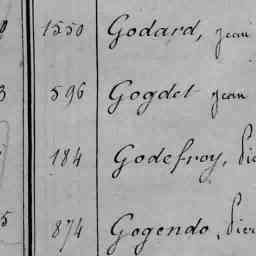 1550 Godard, Jean
596 Gogdet Jean
184 Godefroy, Pie
874 Gogendo, Pier